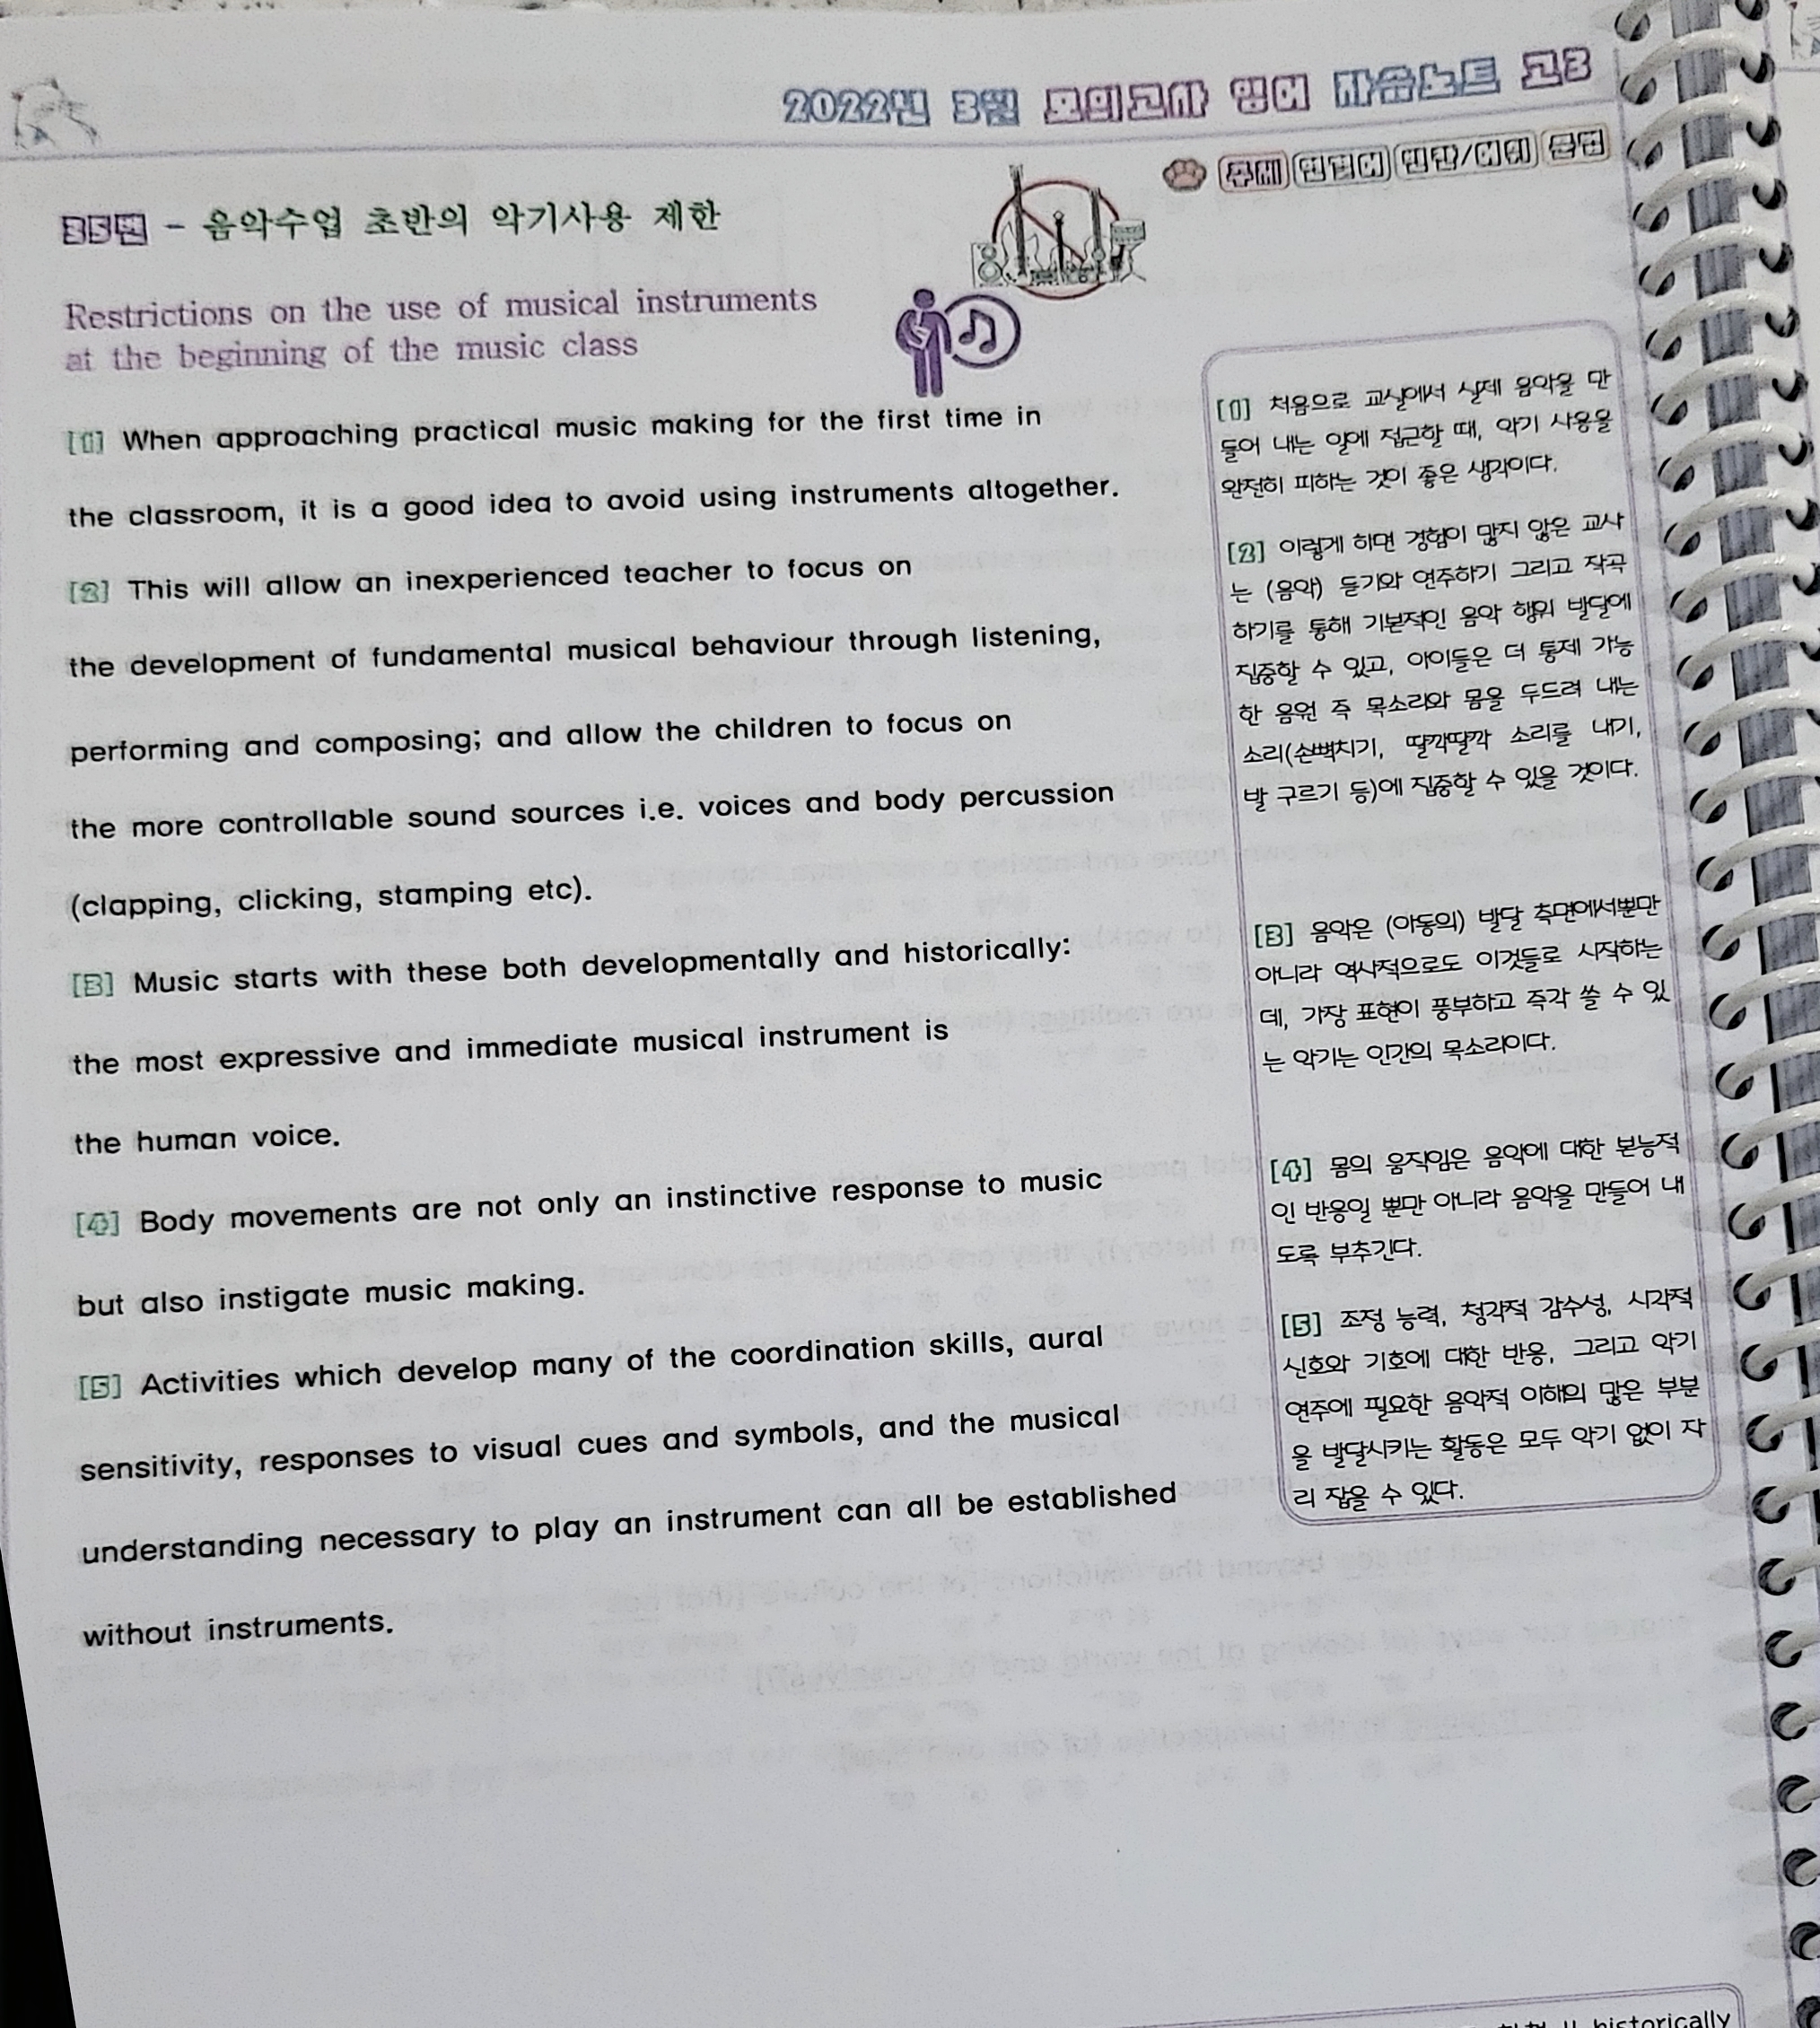 2022년 3월 모의고사 영어 자습노트 고3
주제 연결어 빈칸/어휘 문법
35번 - 음악수업 초반의 악기사용 제한
Restrictions on the use of musical instruments
at the beginning of the music class
[1] When approaching practical music making for the first time in
the classroom, it is a good idea to avoid using instruments altogether.
[2] This will allow an inexperienced teacher to focus on
the development of fundamental musical behaviour through listening,
performing and composing; and allow the children to focus on
the more controllable sound sources i.e. voices and body percussion
(clapping, clicking, stamping etc).
[3] Music starts with these both developmentally and historically:
the most expressive and immediate musical instrument is
the human voice.
[4] Body movements are not only an instinctive response to music
but also instigate music making.
[5] Activities which develop many of the coordination skills, aural
sensitivity, responses to visual cues and symbols, and the musical
understanding necessary to play an instrument can all be established
without instruments.
[1] 처음으로 교실에서 실제 음악을 만
들어 내는 일에 접근할 때, 악기 사용을
완전히 피하는 것이 좋은 생각이다.
[2] 이렇게 하면 경험이 많지 않은 교사
는 (음악) 듣기와 연주하기 그리고 작곡
하기를 통해 기본적인 음악 행위 발달에
집중할 수 있고, 아이들은 더 통제 가능
한 음원 즉 목소리와 몸을 두드려 내는
소리(손뼉치기, 딸깍딸깍 소리를 내기,
발 구르기 등)에 집중할 수 있을 것이다.
[3] 음악은 (아동의) 발달 측면에서뿐만
아니라 역사적으로도 이것들로 시작하는
데, 가장 표현이 풍부하고 즉각 쓸 수 있
는 악기는 인간의 목소리이다.
[4] 몸의 움직임은 음악에 대한 본능적
인 반응일 뿐만 아니라 음악을 만들어 내
도록 부추긴다.
[5] 조정 능력, 청각적 감수성, 시각적
신호와 기호에 대한 반응, 그리고 악기
연주에 필요한 음악적 이해의 많은 부분
을 발달시키는 활동은 모두 악기 없이 자
리 잡을 수 있다.
historically